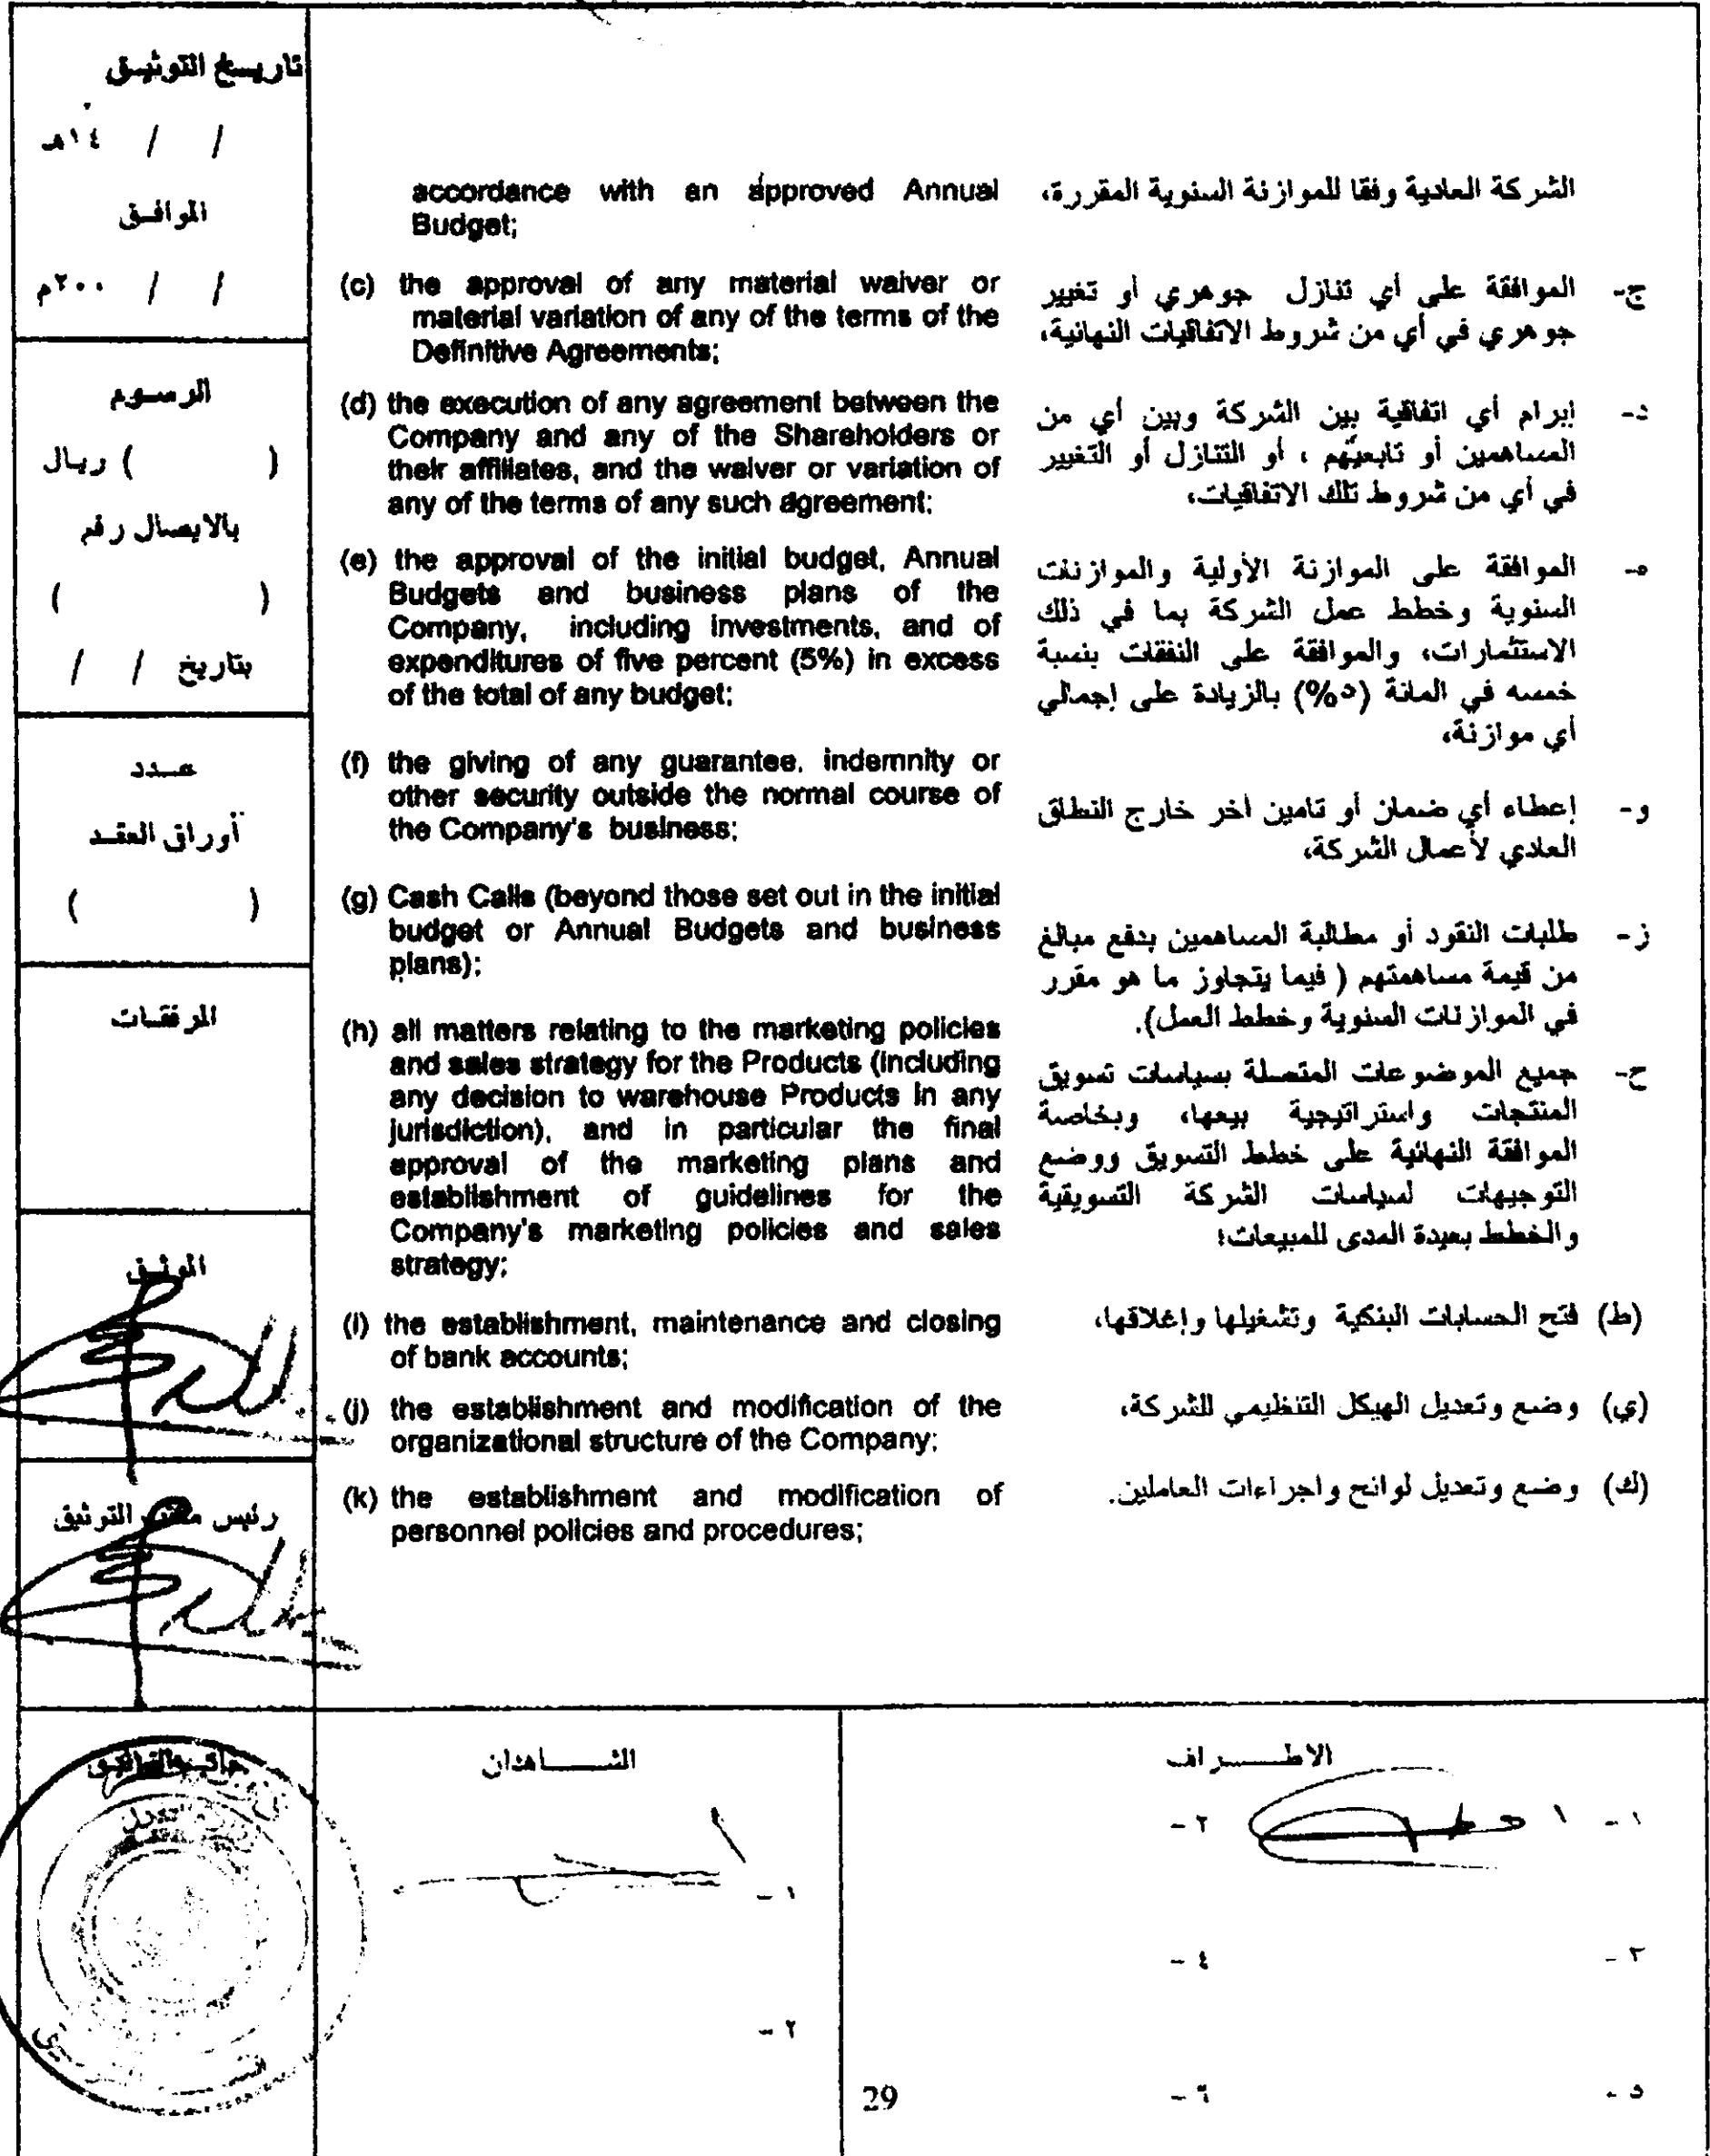 تاريخ التوثيق
/ / ١٤هـ
الموافق
/ / ٢٠٠م
الرسوم
( ) ريال
بالايصال رقم
( )
بتاريخ / /
عدد
أوراق العقد
( )
المرفقات
الموثق
رئيس التوثيق
accordance with an approved Annual
Budget;
(c) the approval of any material waiver or
material variation of any of the terms of the
Definitive Agreements;
(d) the execution of any agreement between the
Company and any of the Shareholders or
their affiliates, and the waiver or variation of
any of the terms of any such agreement;
(e) the approval of the initial budget, Annual
Budgets and business plans of the
Company, including investments, and of
expenditures of five percent (5%) in excess
of the total of any budget;
(f) the giving of any guarantee, indemnity or
other security outside the normal course of
the Company's business;
(g) Cash Calls (beyond those set out in the initial
budget or Annual Budgets and business
plans);
(h) all matters relating to the marketing policies
and sales strategy for the Products (including
any decision to warehouse Products in any
jurisdiction), and in particular the final
approval of the marketing plans and
establishment of guidelines for the
Company's marketing policies and sales
strategy;
(i) the establishment, maintenance and closing
of bank accounts;
(j) the establishment and modification of the
organizational structure of the Company;
(k) the establishment and modification of
personnel policies and procedures;
الشركة العادية وفقا للموازنة السنوية المقررة،
ج- الموافقة على أي تنازل جوهري أو تغيير
جوهري في أي من شروط الاتفاقيات النهائية،
د- إبرام أي اتفاقية بين الشركة وبين أي من
المساهمين أو تابعيهم ، أو التنازل أو التغيير
في أي من شروط تلك الاتفاقيات،
هـ- الموافقة على الموازنة الأولية والموازنات
السنوية وخطط عمل الشركة بما في ذلك
الاستثمارات، والموافقة على النفقات بنسبة
خمسه في المائة (٥%) بالزيادة على إجمالي
أي موازنة،
و- إعطاء أي ضمان أو تامين اخر خارج النطاق
العادي لأعمال الشركة،
ز- طلبات النقود أو مطالبة المساهمين بدفع مبالغ
من قيمة مساهمتهم ( فيما يتجاوز ما هو مقرر
في الموازنات السنوية وخطط العمل).
ح- جميع الموضوعات المتصلة بسياسات تسويق
المنتجات واستراتيجية بيعها، وبخاصة
الموافقة النهائية على خطط التسويق ووضع
التوجيهات لسياسات الشركة التسويقية
والخطط بعيدة المدى للمبيعات؛
(ط) فتح الحسابات البنكية وتشغيلها وإغلاقها،
(ي) وضع وتعديل الهيكل التنظيمي للشركة،
(ك) وضع وتعديل لوائح واجراءات العاملين.
الاطراف
١ -
٢ -
٣ -
٤ -
٥ -
٦ -
الشاهدان
١ -
٢ -
29